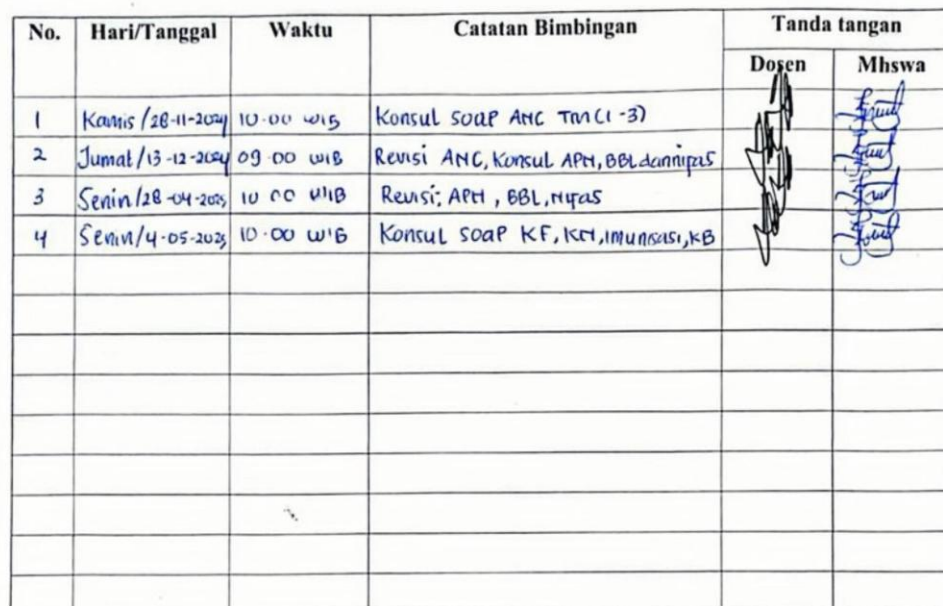 No. Hari/Tanggal Waktu Catatan Bimbingan Tanda tangan
Dosen Mhswa
1 Kamis/28-11-2024 10.00 WIB Konsul SOAP ANC TM (1-3)
2 Jumat/13-12-2024 09.00 WIB Revisi ANC, Konsul APN, BBL dan nifas
3 Senin/28-04-2025 10.00 WIB Revisi: APN, BBL, Nifas
4 Senin/4-05-2025 10.00 WIB Konsul SOAP KF, KN, imunisasi, KB